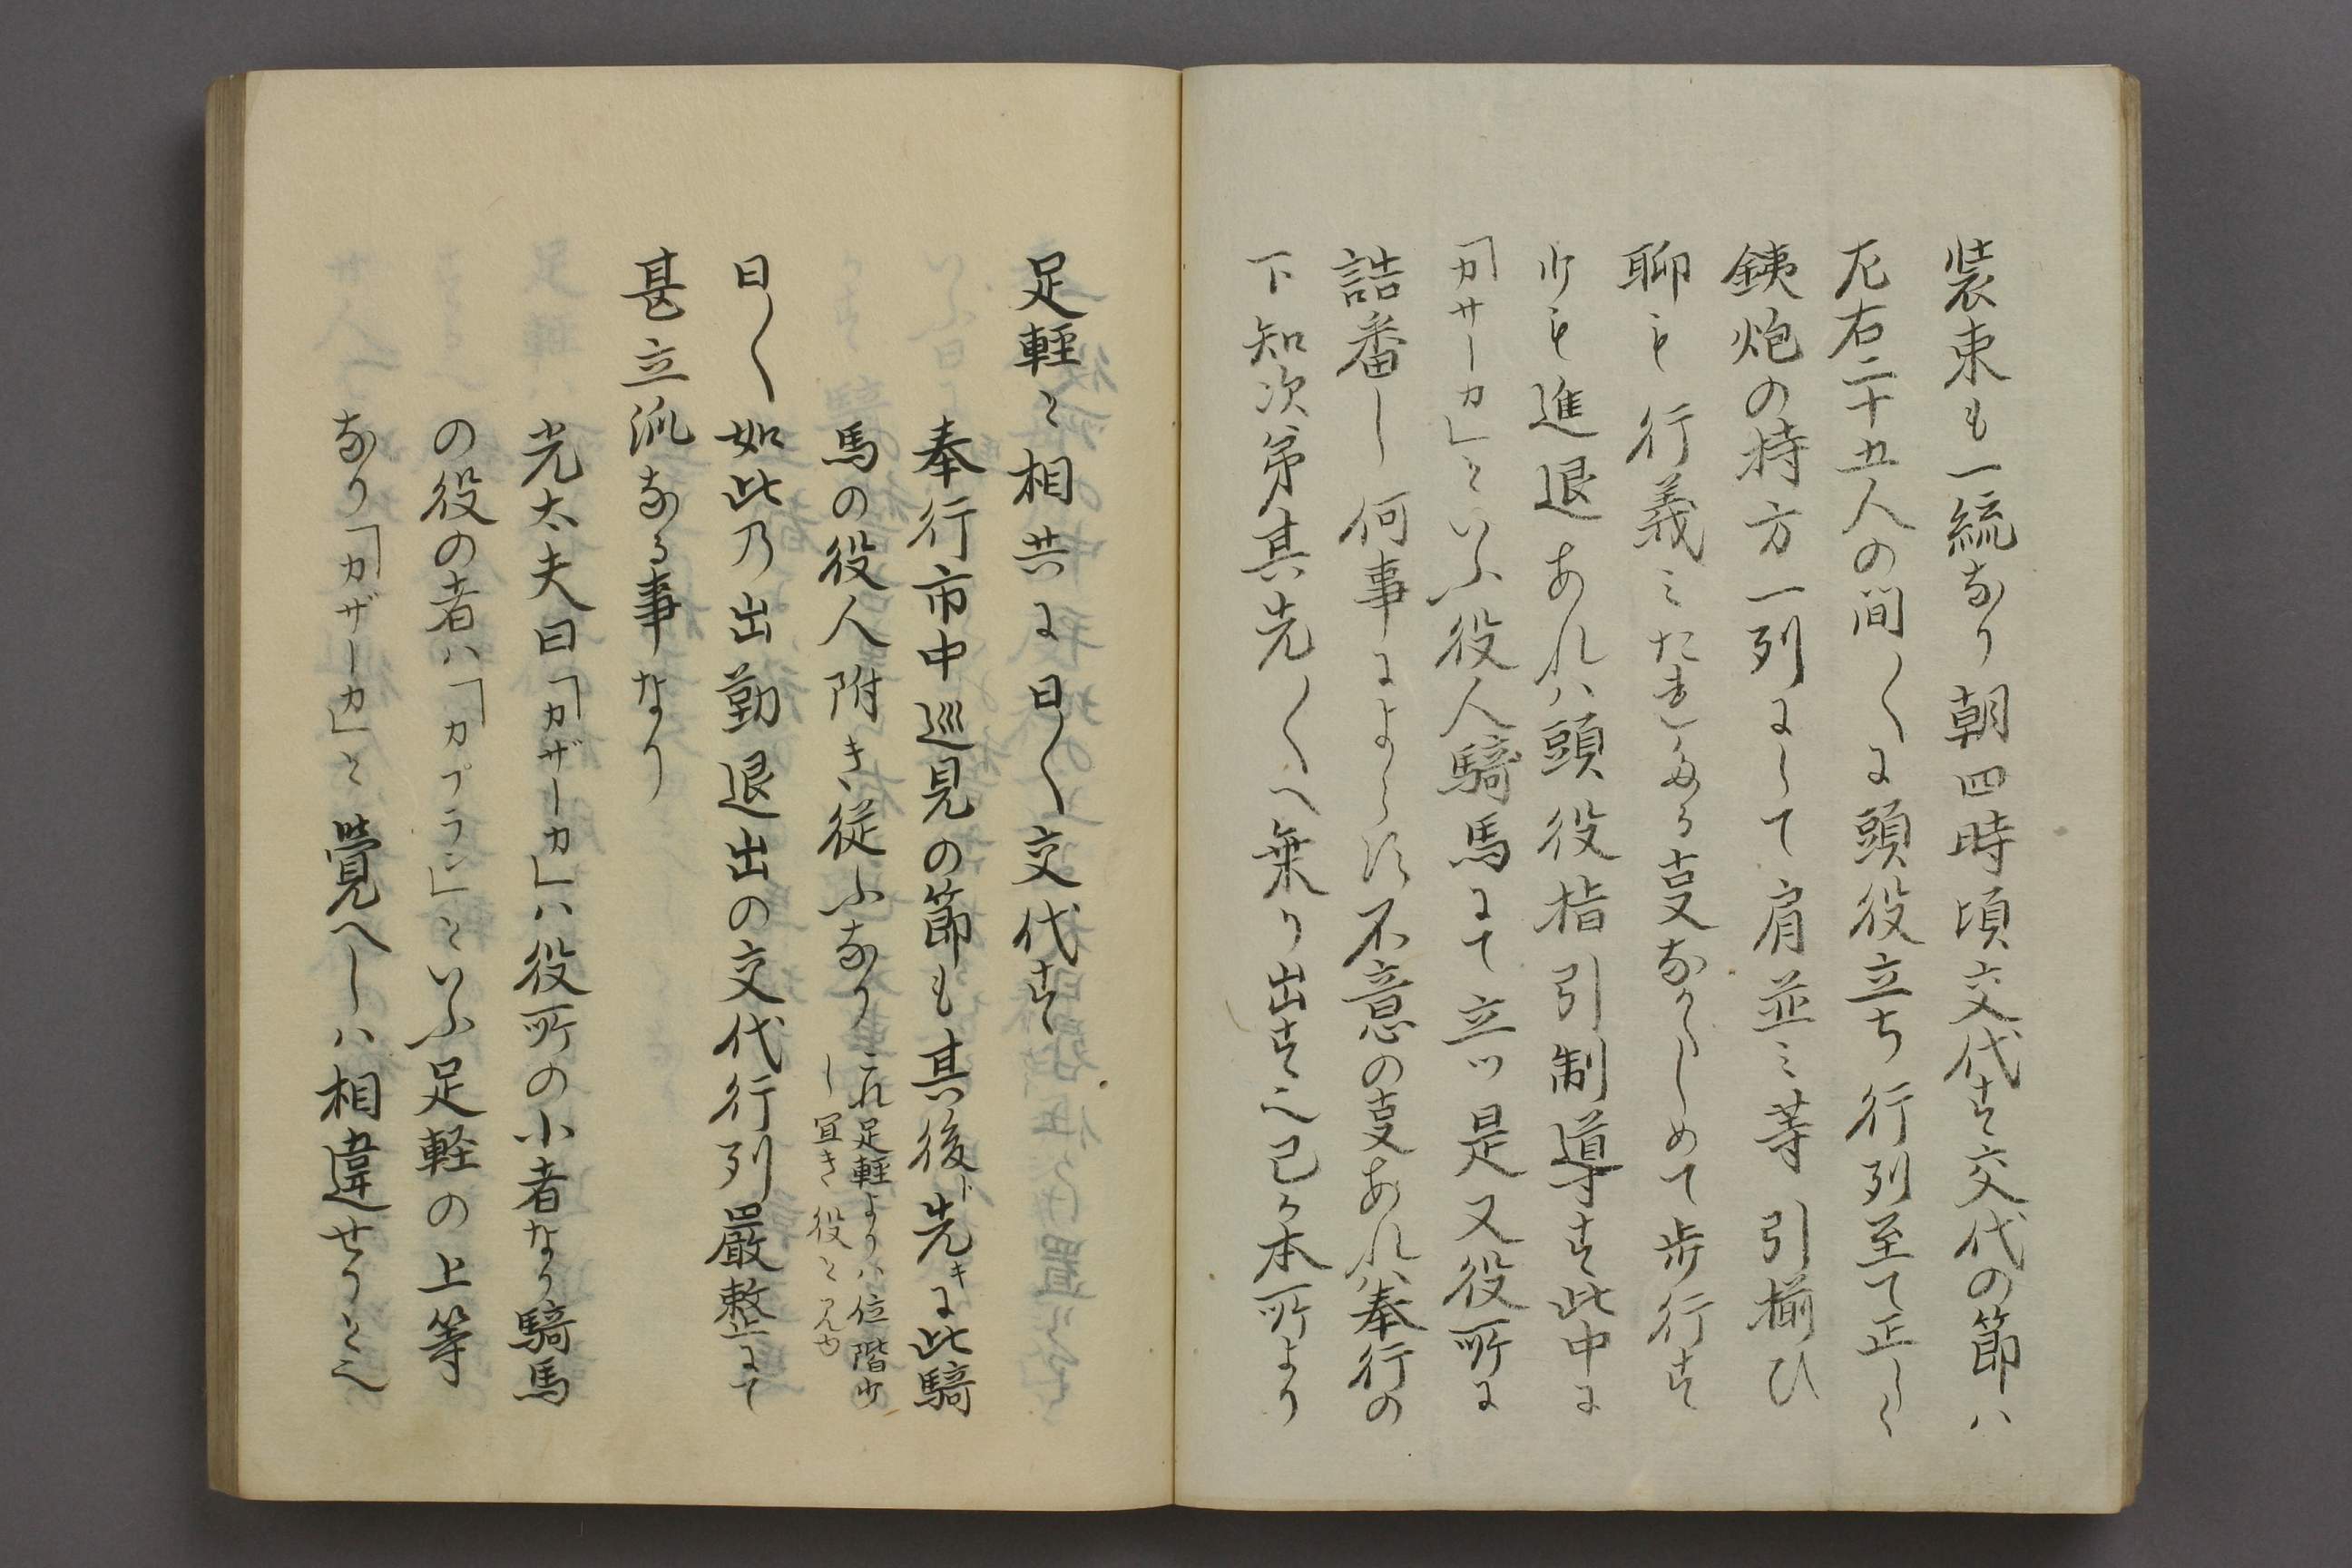 装束も一統なり朝四時頃交代す交代の節ハ
左右二十五人の間〱に頭役立ち行列至て正しく
銕炮の持方一列にして肩並ミ等引揃ひ
聊も行義ミたれたる事なからしめて歩行す
少も進退あれハ頭役指引制導す此中に
「カサーカ」といふ役人騎馬にて立ツ是又役所に
詰番し何事によらす不意の事あれハ奉行の
下知次第其先〱へ乗り出す也己か本所より
足軽と相共に日〱交代す
奉行市中巡見の節も其後ド先キに此騎
馬の役人附き従ふなり
これ足軽よりハ位階少
し宜き役と見ゆ
日〱如此乃出勤退出の交代行列嚴整にて
甚立派なる事なり
光太夫曰「カザーカ」ハ役所の小者なり騎馬
の役の者ハ「カプラン」といふ足軽の上等
なり「カザーカ」と覺へしハ相違せりと也